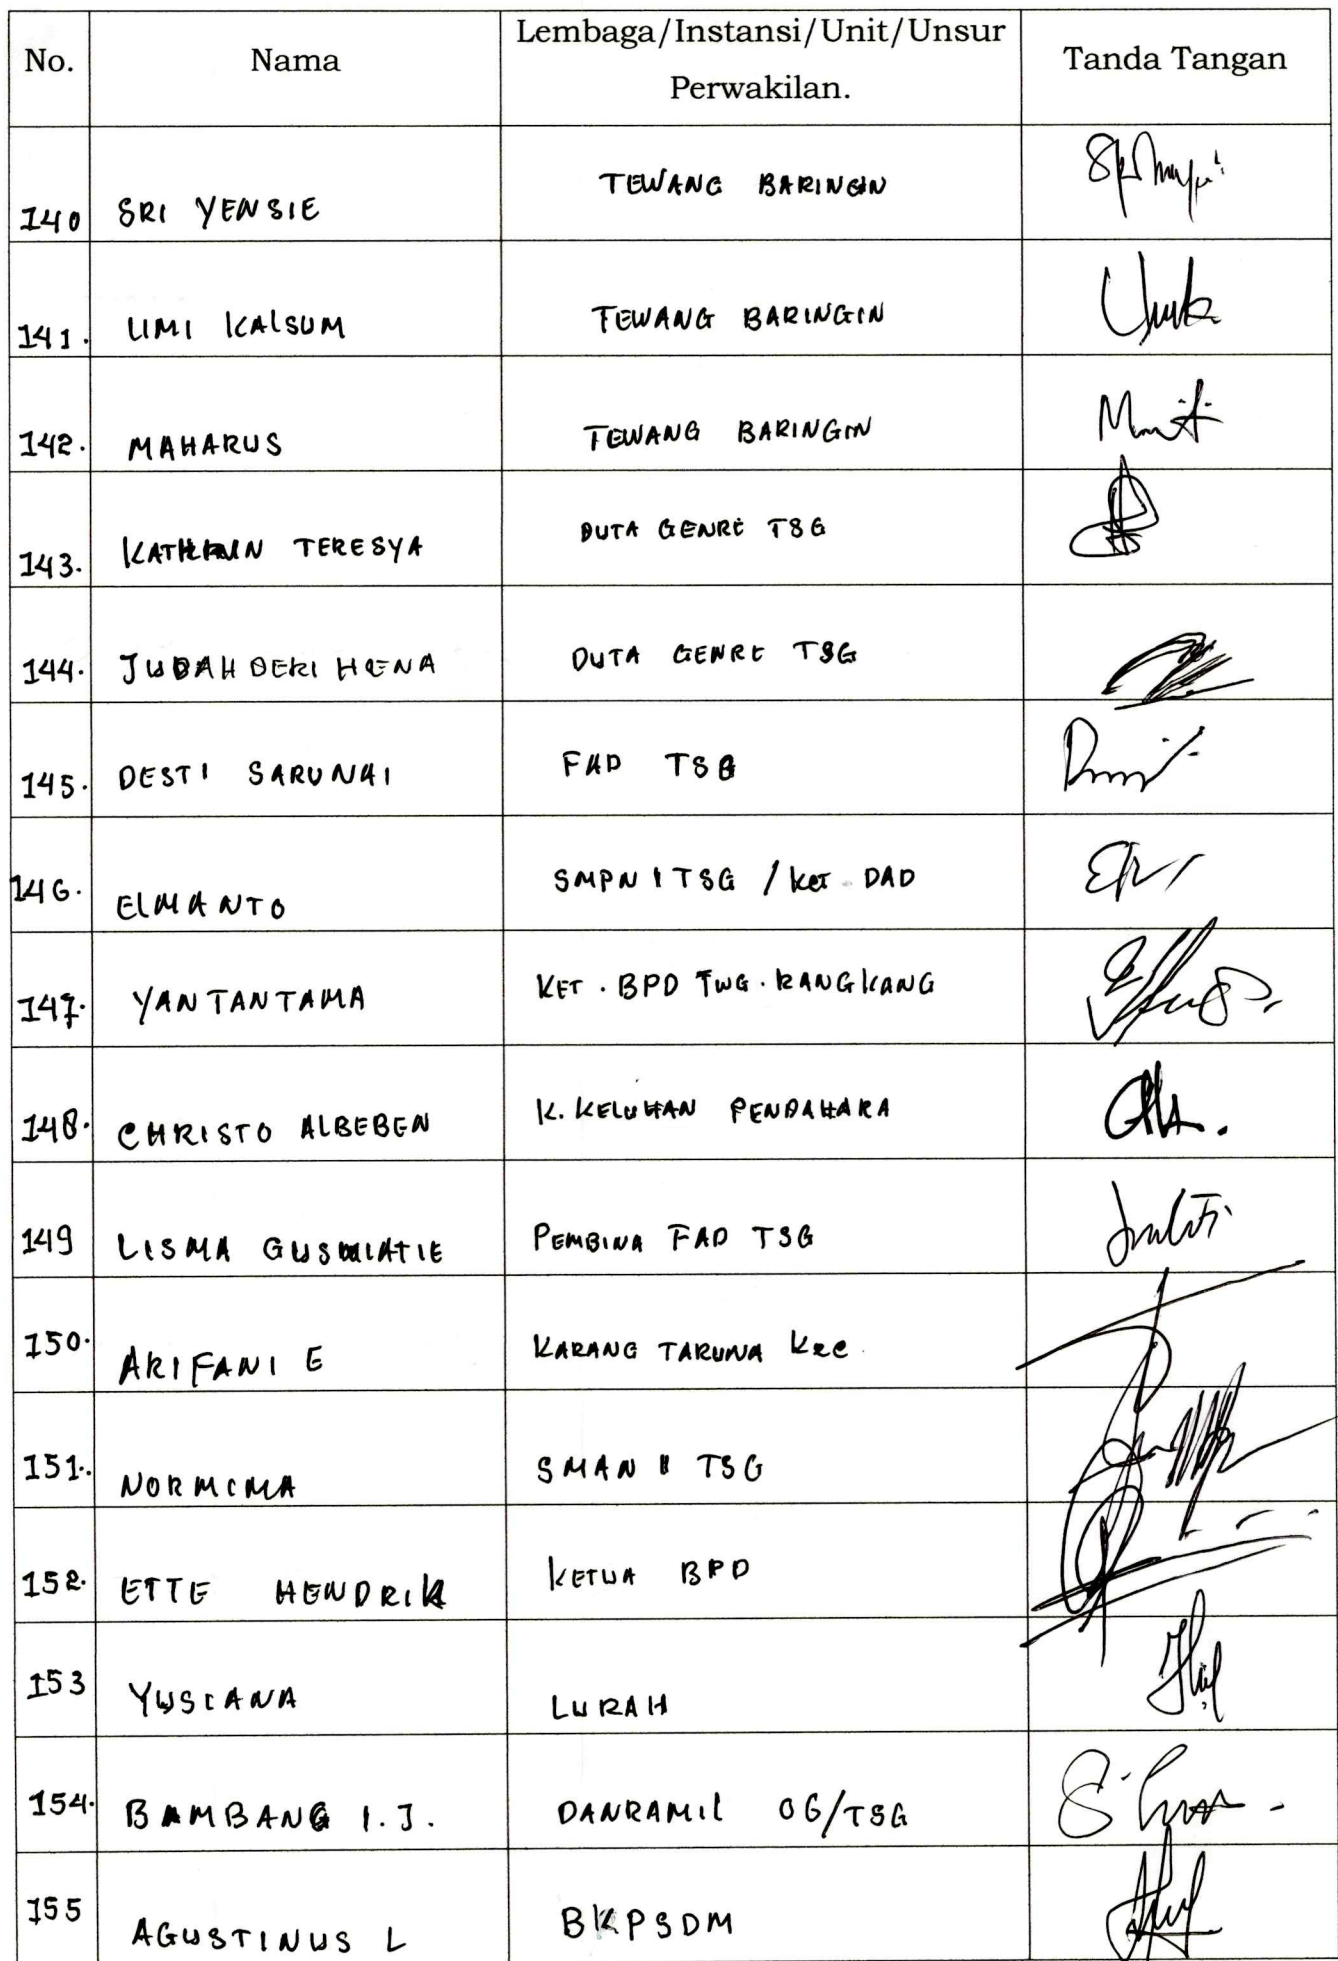 No. Nama Lembaga/Instansi/Unit/Unsur Perwakilan. Tanda Tangan
140 SRI YENSIE TEWANG BARINGIN
141. UMI KALSUM TEWANG BARINGIN
142. MAHARUS TEWANG BARINGIN
143. TERESYA DUTA GENRE TSG
144. JUDAH DERI HENA DUTA GENRE TSG
145. DESTI SARUNAI FAD TSG
146. ELMANTO SMPN 1 TSG / KET DAD
147. YANTANTAMA KET. BPD TWG. RANGKANG
148. CHRISTO ALBEBEN K. KELUHAN PENDAHARA
149 LISMA GUSMIATIE PEMBINA FAD TSG
150. ARIFANI E KARANG TARUNA KEC
151. NORMIMA SMAN TSG
152. ETTE HENDRIK KETUA BPD
153 YUSIANA LURAH
154. BAMBANG I.J. DANRAMIL 06/TSG
155 AGUSTINUS L BKPSDM